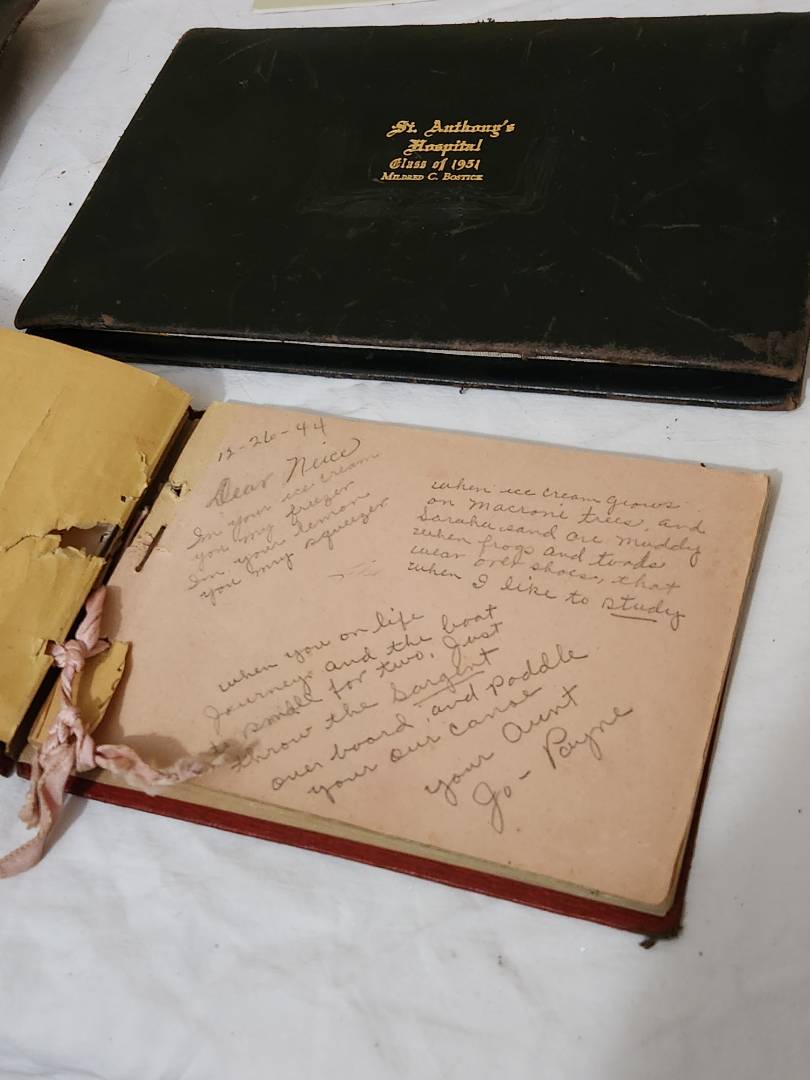 St. Anthony's
Hospital
Class of 1931
Mildred C. Bostick
12-26-44
Dear Neice
Im your ice cream
you my freezer
Im your lemon
you my squeezer
when ice cream grows
on Macroni trees, and
Saraha sand are muddy
when frogs and toads
wear over shoes, that
when I like to study
when you on life
Journeys and the boat
to small for two, Just
throw the Sargent
over board, and paddle
your our canoe
your Aunt
Jo - Payne